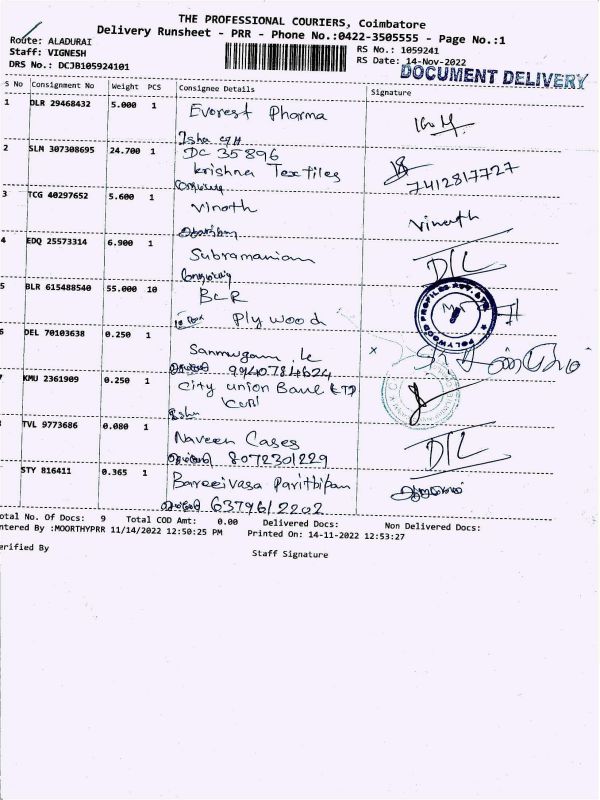 THE PROFESSIONAL COURIERS, Coimbatore
Delivery Runsheet - PRR - Phone No.:0422-3505555 - Page No.:1
Route: ALADURAI
RS No.: 1059241
Staff: VIGNESH
RS Date: 14-Nov-2022
DRS No.: DCJB105924101
DOCUMENT DELIVERY
S No Consignment No Weight PCS Consignee Details Signature
1 DLR 29468432 5.000 1 Everest Pharma
2 SLM 307308695 24.700 1 DC 35896
Krishna Textiles 7412817727
3 TCG 40297652 5.600 1 Vinoth Vinoth
4 EDQ 25573314 6.900 1 Subramaniam D/L
5 BLR 615488540 55.000 10 BCR
Plywood
6 DEL 70103638 0.250 1 Sanmugam
9940784624
7 KMU 2361909 0.250 1 City union Bank LTD
"CUB"
TVL 9773686 0.080 1 Naveen Cases D/L
8072301229
STY 816411 0.365 1
6379612202
otal No. Of Docs: 9 Total COD Amt: 0.00 Delivered Docs: Non Delivered Docs:
ntered By :MOORTHYPRR 11/14/2022 12:50:25 PM Printed On: 14-11-2022 12:53:27
erified By
Staff Signature